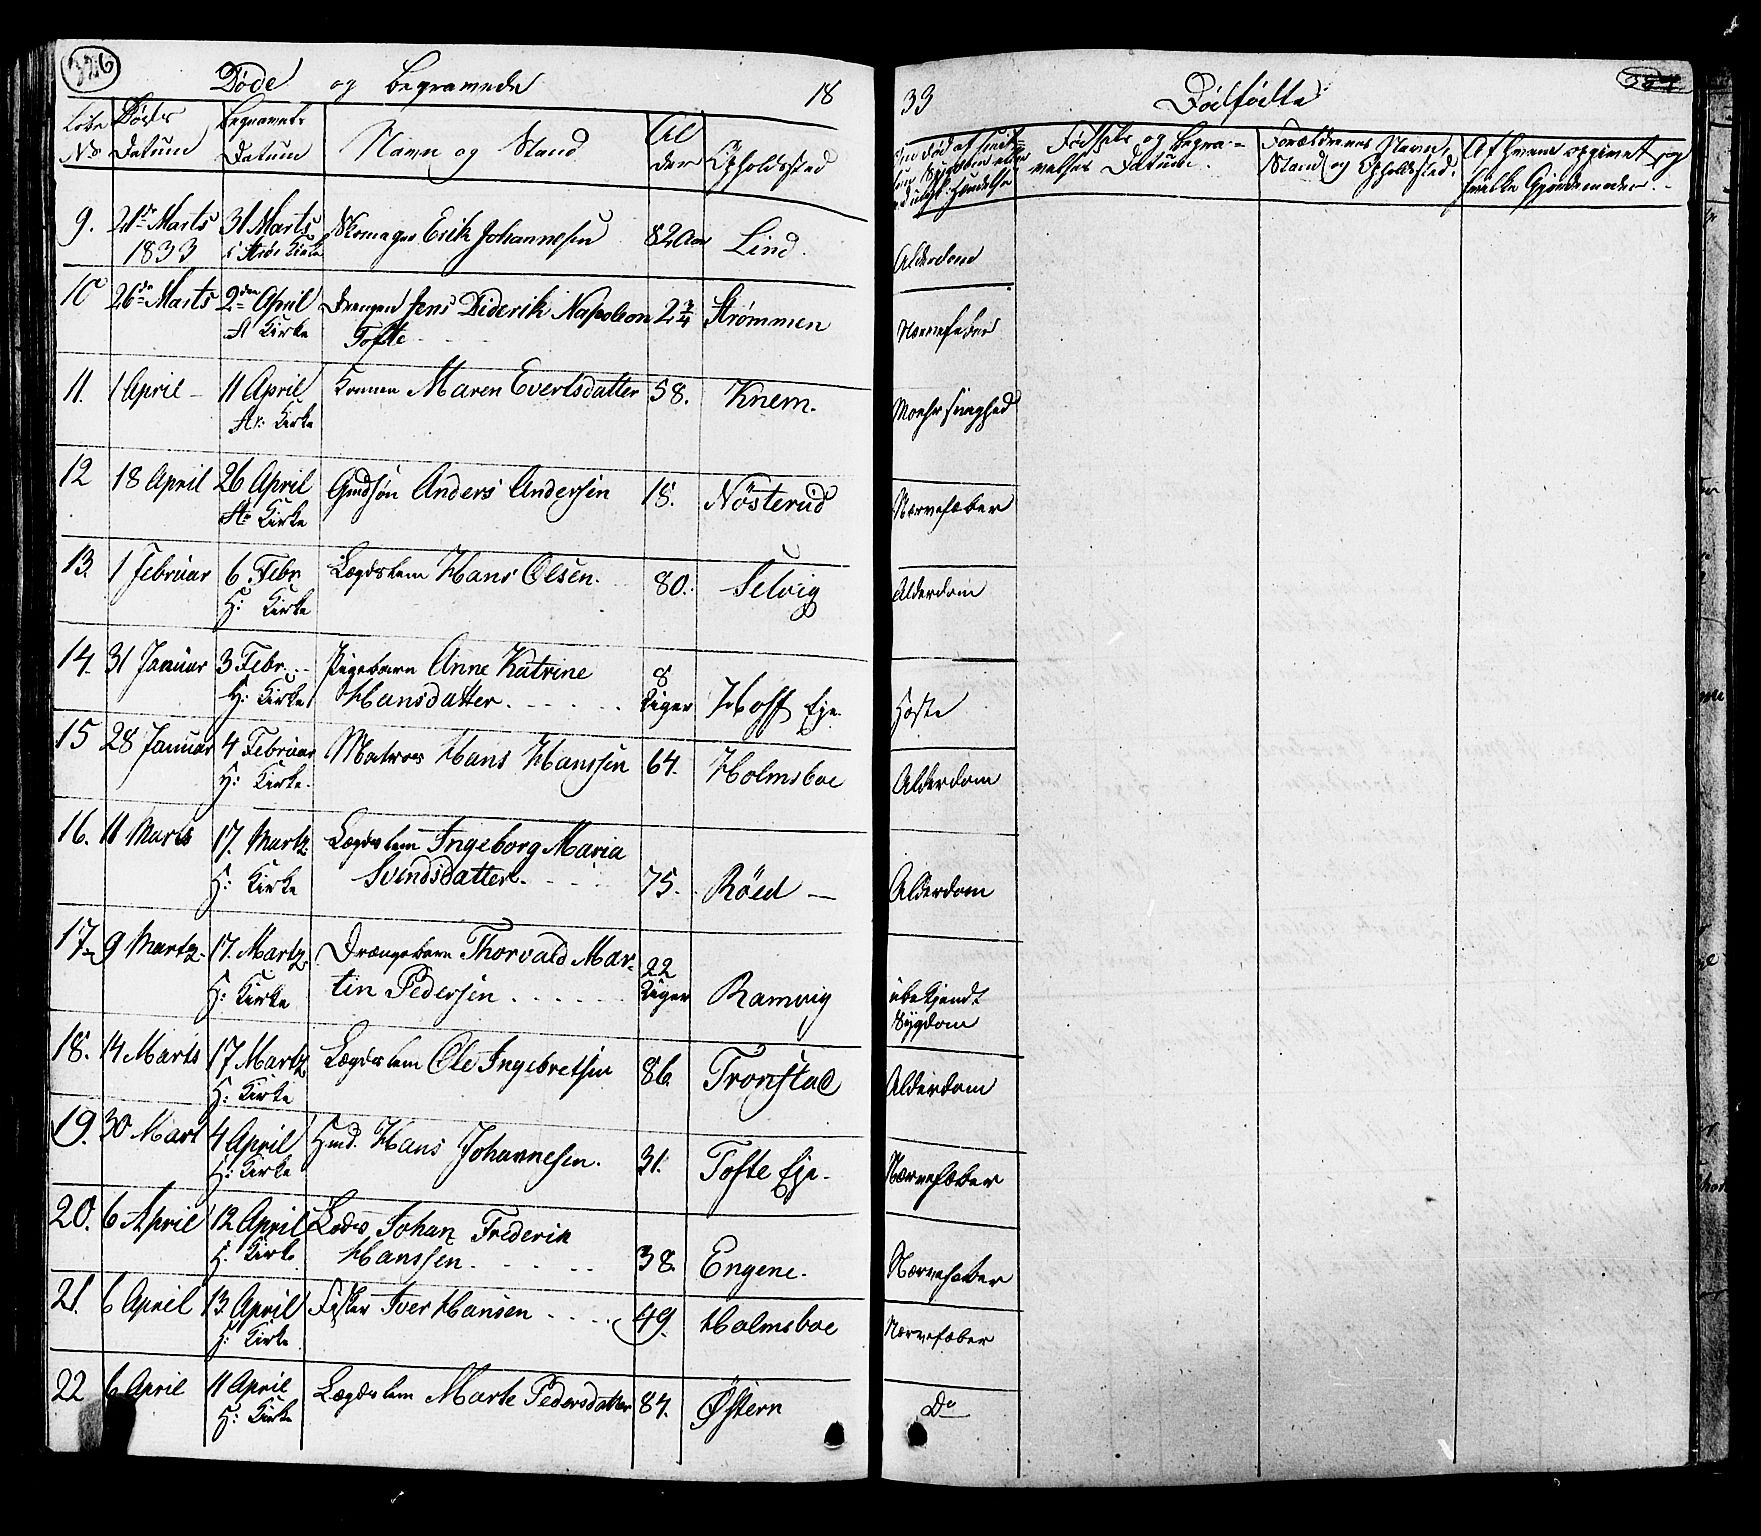 326
Døde og begravede 18
Løbe Døds Begravels
No Datum Datum Navn og Stand Alder Opholdssted
9. 21de Marts 31 Marts Skomager Erik Johannesen 82 Aar Lind.
1833 i St. Kirke
10 26de Marts 2den April Drengen Jens Diderik Napoleon 2 3/4 Strømmen
St Kirke Tofte - - -
11. 1 April - 11 April Konen Maren Evertsdatter 58. Knem.
St: Kirke
12 18 April 26 April Gmdsøn Anders Andersen 18. Nösterud
St: Kirke
13. 1 Februar 6 Febr Lægdslem Hans Olsen. 80. Selvig
H: Kirke
14. 31 Januar 3 Febr. Pigebarn Anne Katrine 8
H: Kirke Hansdatter. - - - - Uger Hoff Eje.
15 28 Januar 4 Februar Matros Hans Hanssen 64. Holmsboe
H: Kirke.
16. 11 Marts 17. Martz Lægdslem Ingeborg Maria
H: Kirke Svendsdatter. - - - 75. Röed -
17. 9 Martz. 17. Martz Drængebarn Thorvald Mar- 22
H: Kirke tin Pedersen . . . . . . Uger Ramvig
18. 14 Marts 17 Martz Lægdslem Ole Ingebretsen 86. Tronstad
H: Kirke
19. 30 Mart 4 April Gmd. Hans Johannesen. 31. Tofte Eje.
H: Kirke
20. 6 April 12 April Lods Johan Frederik
H. Kirke Hanssen. - - - - 38. Engene.
21. 6 April 13 April Fisker Iver Hansen - - - - 49. Holmsboe
H: Kirke
22 6 April 11 April Lægdslem Marte Pedersdatter 84. Østern
H: Kirke
33 Dødfødte
Om død af Fødsels og Begra- Forældrenes Navn, Af hvem opgivet og
velses Datum. Stand og Opholdsted. hvilke Gjenmoder. -
Alderdom
Nervefeber
Alderdom
Nervefeber
Alderdom
Hoste
Alderdom
Alderdom
ubekjendt
Sygdom
Alderdom
Nervefeber
Nervefeber
Nervefeber
Do